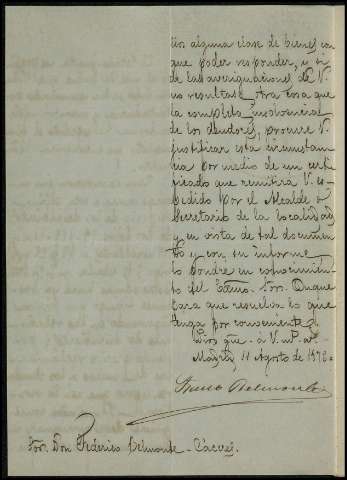 een alguna clase de bienes con
que poder responder, y si
de las averiguaciones de V.
no resultase otra cosa que
la completa insolvencia
de los deudores, procure V.
justificar esta circunstan
cia por medio de un certi
ficado que remitirá V. es
pedido por el Alcalde o
Secretario de la localidad
y en vista de tal documen
to y con su informe
lo pondre en conocimien
to del Excmo. Sor. Duque
para que resuelva lo que
tenga por conveniente
Dios gue. á V. ms. as.
Madrid, 11 Agosto de 1872.
Belmonte
Sor. Don Federico Belmonte - Caceres.